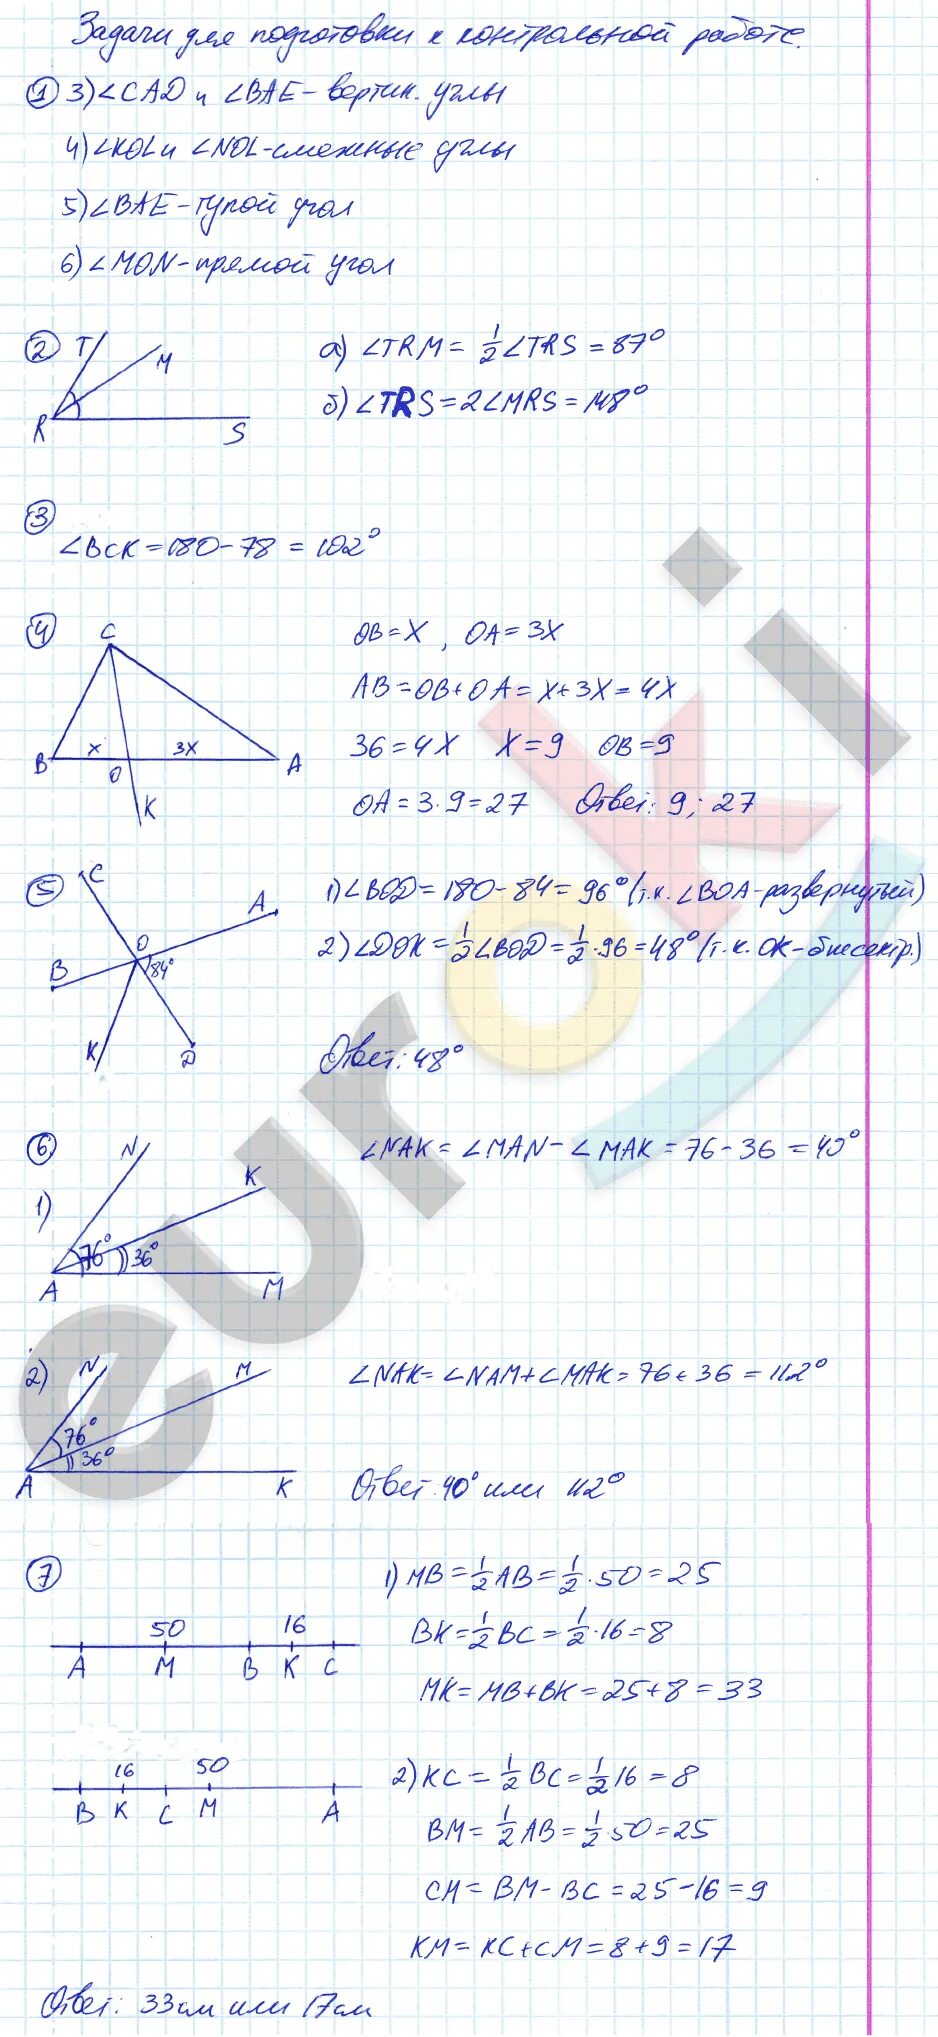 Задачи для подготовки к контрольной работе.
① 3) ∠CAD и ∠BAE - вертик. углы
4) ∠KOL и ∠NOL - смежные углы
5) ∠BAE - тупой угол
6) ∠MON - прямой угол
② T M R S
а) ∠TRM = 1/2 ∠TRS = 87°
б) ∠TRS = 2∠MRS = 148°
③
∠BCK = 180 - 78 = 102°
④ C B x O 3x A K
OB = x , OA = 3x
AB = OB + OA = x + 3x = 4x
36 = 4x x = 9 OB = 9
OA = 3·9 = 27 Ответ: 9; 27
⑤ C A O B 84° K D
1) ∠BOD = 180 - 84 = 96° (т.к. ∠BOA - развернутый)
2) ∠DOK = 1/2 ∠BOD = 1/2 · 96 = 48° (т.к. OK - биссектр.)
Ответ: 48°
⑥ ∠NAK = ∠MAN - ∠MAK = 76 - 36 = 40°
1) N K 76° 36° A M
2) N M 76° 36° A K
∠NAK = ∠NAM + ∠MAK = 76 + 36 = 112°
Ответ: 40° или 112°
⑦ 1) MB = 1/2 AB = 1/2 · 50 = 25
50 16
A M B K C
BK = 1/2 BC = 1/2 · 16 = 8
MK = MB + BK = 25 + 8 = 33
16 50
B K C M A
2) KC = 1/2 BC = 1/2 16 = 8
BM = 1/2 AB = 1/2 · 50 = 25
CM = BM - BC = 25 - 16 = 9
KM = KC + CM = 8 + 9 = 17
Ответ: 33 см или 17 см
euroki